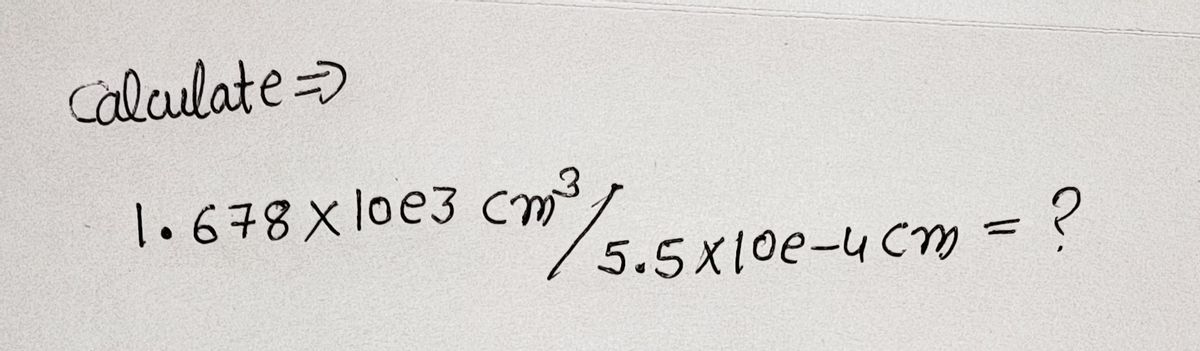 Calculate ⇒
1.678 × 10e3 cm³ / 5.5 × 10e-4 cm = ?